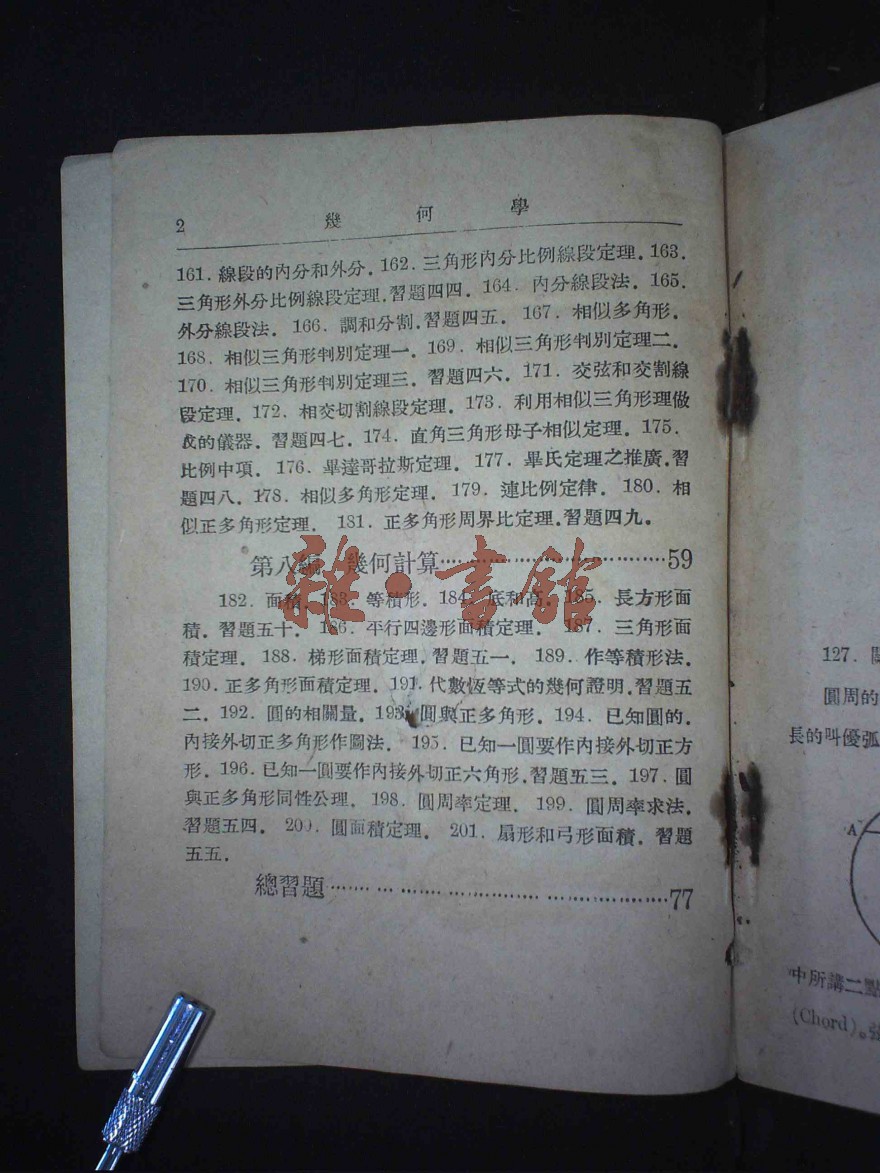 2 幾何學
161．線段的內分和外分．162．三角形內分比例線段定理．163．
三角形外分比例線段定理．習題四四．164．內分線段法．165．
外分線段法．166．調和分割．習題四五．167．相似多角形．
168．相似三角形判別定理一．169．相似三角形判別定理二．
170．相似三角形判別定理三．習題四六．171．交弦和交割線
段定理．172．相交切割線段定理．173．利用相似三角形理做
成的儀器．習題四七．174．直角三角形母子相似定理．175．
比例中項．176．畢達哥拉斯定理．177．畢氏定理之推廣．習
題四八．178．相似多角形定理．179．連比例定律．180．相
似正多角形定理．181．正多角形周界比定理．習題四九．
第八編 幾何計算……………………………59
182．面積．183．等積形．184．底和高．185．長方形面
積．習題五十．186．平行四邊形面積定理．187．三角形面
積定理．188．梯形面積定理．習題五一．189．作等積形法．
190．正多角形面積定理．191．代數恆等式的幾何證明．習題五
二．192．圓的相關量．193．圓與正多角形．194．已知圓的．
內接外切正多角形作圖法．195．已知一圓要作內接外切正方
形．196．已知一圓要作內接外切正六角形．習題五三．197．圓
與正多角形同性公理．198．圓周率定理．199．圓周率求法．
習題五四．200．圓面積定理．201．扇形和弓形面積．習題
五五．
總習題……………………………………77
雜·書館
127．
圓周的
長的叫優弧
A
中所講二點
(Chord)。